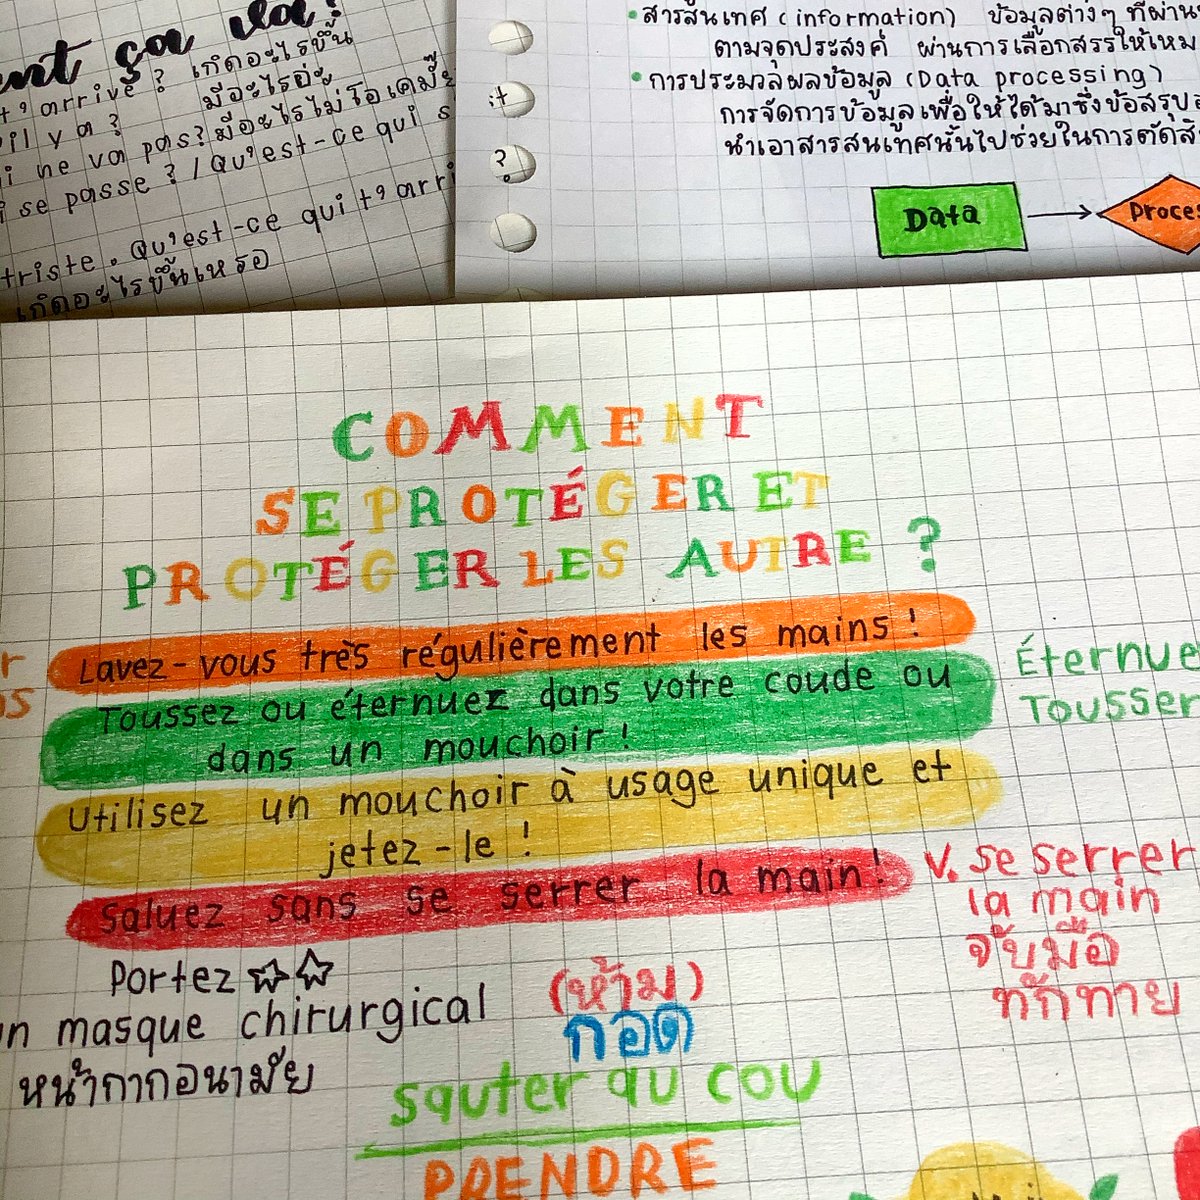 ça va?
t'arrive? เกิดอะไรขึ้น
il y a? มีอะไรอ่ะ
ne va pas? มีอะไรไม่โอเคมั๊ย
se passe? / Qu'est-ce qui s
triste. Qu'est-ce qui t'arri
เกิดอะไรขึ้นเหรอ
• สารสนเทศ (information) ข้อมูลต่างๆ ที่ผ่าน
ตามจุดประสงค์ ผ่านการเลือกสรรให้เหม
• การประมวลผลข้อมูล (Data processing)
การจัดการข้อมูลเพื่อให้ได้มาซึ่งข้อสรุป
นำเอาสารสนเทศนั้นไปช่วยในการตัดสิ
Data
Proce
COMMENT
SE PROTÉGER ET
PROTÉGER LES AUTRE ?
Lavez-vous très régulièrement les mains !
Toussez ou éternuez dans votre coude ou
dans un mouchoir !
Éternue
Tousser
Utilisez un mouchoir à usage unique et
jetez-le !
Saluez sans se serrer la main !
V. se serrer
la main
จับมือ
ทักทาย
Portez
un masque chirurgical
หน้ากากอนามัย
(ห้าม)
กอด
sauter au cou
PRENDRE